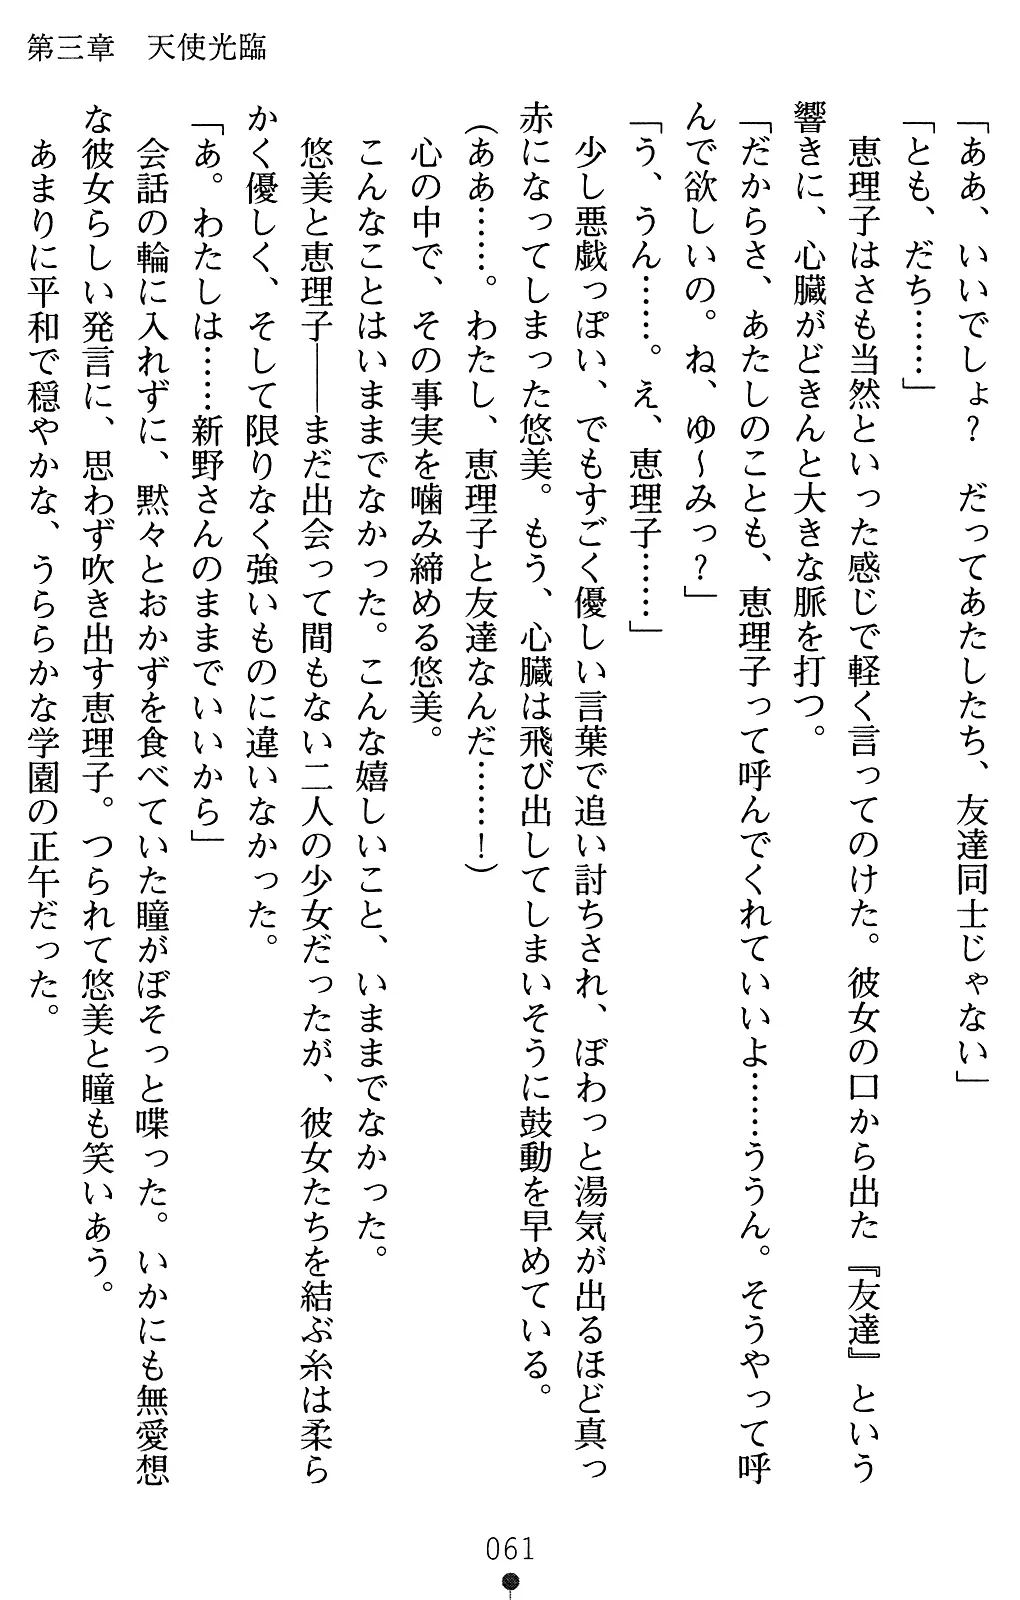 第三章　天使光臨
「ああ、いいでしょ？　だってあたしたち、友達同士じゃない」
「とも、だち……」
　恵理子はさも当然といった感じで軽く言ってのけた。彼女の口から出た『友達』という
響きに、心臓がどきんと大きな脈を打つ。
「だからさ、あたしのことも、恵理子って呼んでくれていいよ……ううん。そうやって呼
んで欲しいの。ね、ゆ～みっ？」
「う、うん……。え、恵理子……」
　少し悪戯っぽい、でもすごく優しい言葉で追い討ちされ、ぼわっと湯気が出るほど真っ
赤になってしまった悠美。もう、心臓は飛び出してしまいそうに鼓動を早めている。
（ああ……。わたし、恵理子と友達なんだ……！）
　心の中で、その事実を噛み締める悠美。
　こんなことはいままでなかった。こんな嬉しいこと、いままでなかった。
　悠美と恵理子――まだ出会って間もない二人の少女だったが、彼女たちを結ぶ糸は柔ら
かく優しく、そして限りなく強いものに違いなかった。
「あ。わたしは……新野さんのままでいいから」
　会話の輪に入れずに、黙々とおかずを食べていた瞳がぼそっと喋った。いかにも無愛想
な彼女らしい発言に、思わず吹き出す恵理子。つられて悠美と瞳も笑いあう。
　あまりに平和で穏やかな、うららかな学園の正午だった。
061